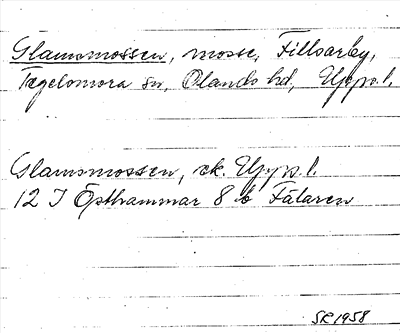 Glamsmossen, mosse, Fillsarby,
Tegelsmora sn, Olands hd, Upps.l.
Glamsmossen, ek. Upps.l.
12 I Östhammar 8 b Fälaren
SR 1958